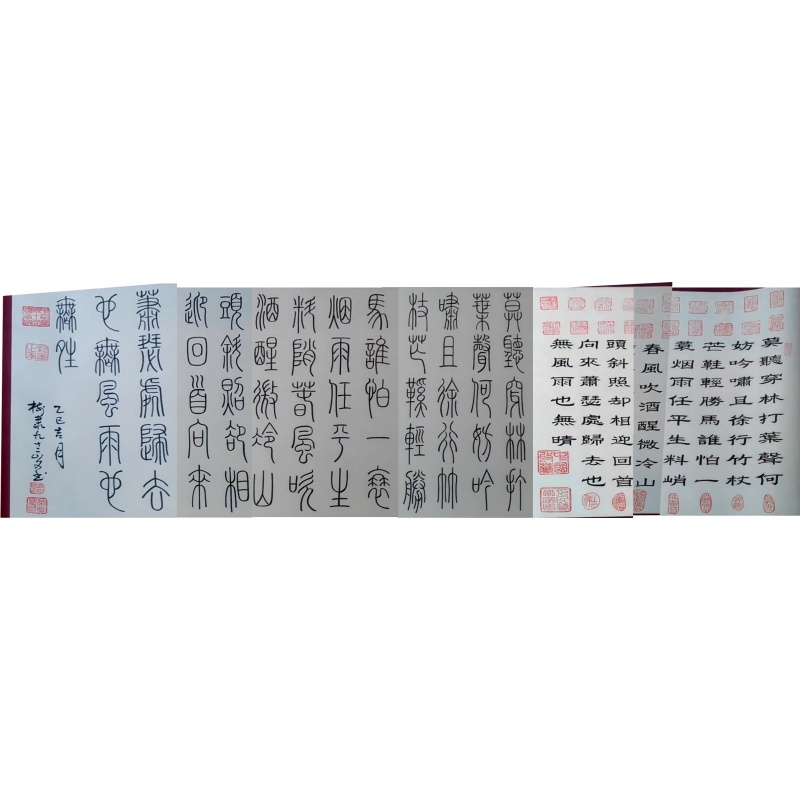 莫聽穿林打葉聲何
妨吟嘯且徐行竹杖
芒鞋輕勝馬誰怕一
蓑烟雨任平生料峭
春風吹酒醒微冷山
頭斜照却相迎回首
向來蕭瑟處歸去也
無風雨也無晴
莫聽穿林打
葉聲何妨吟
嘯且徐行竹
杖芒鞵輕勝
馬誰怕一蓑
烟雨任平生
料陗春風吹
酒醒微冷山
頭斜照卻相
迎回首向來
蕭瑟處歸去
也無風雨也
無姓
乙巳吉月